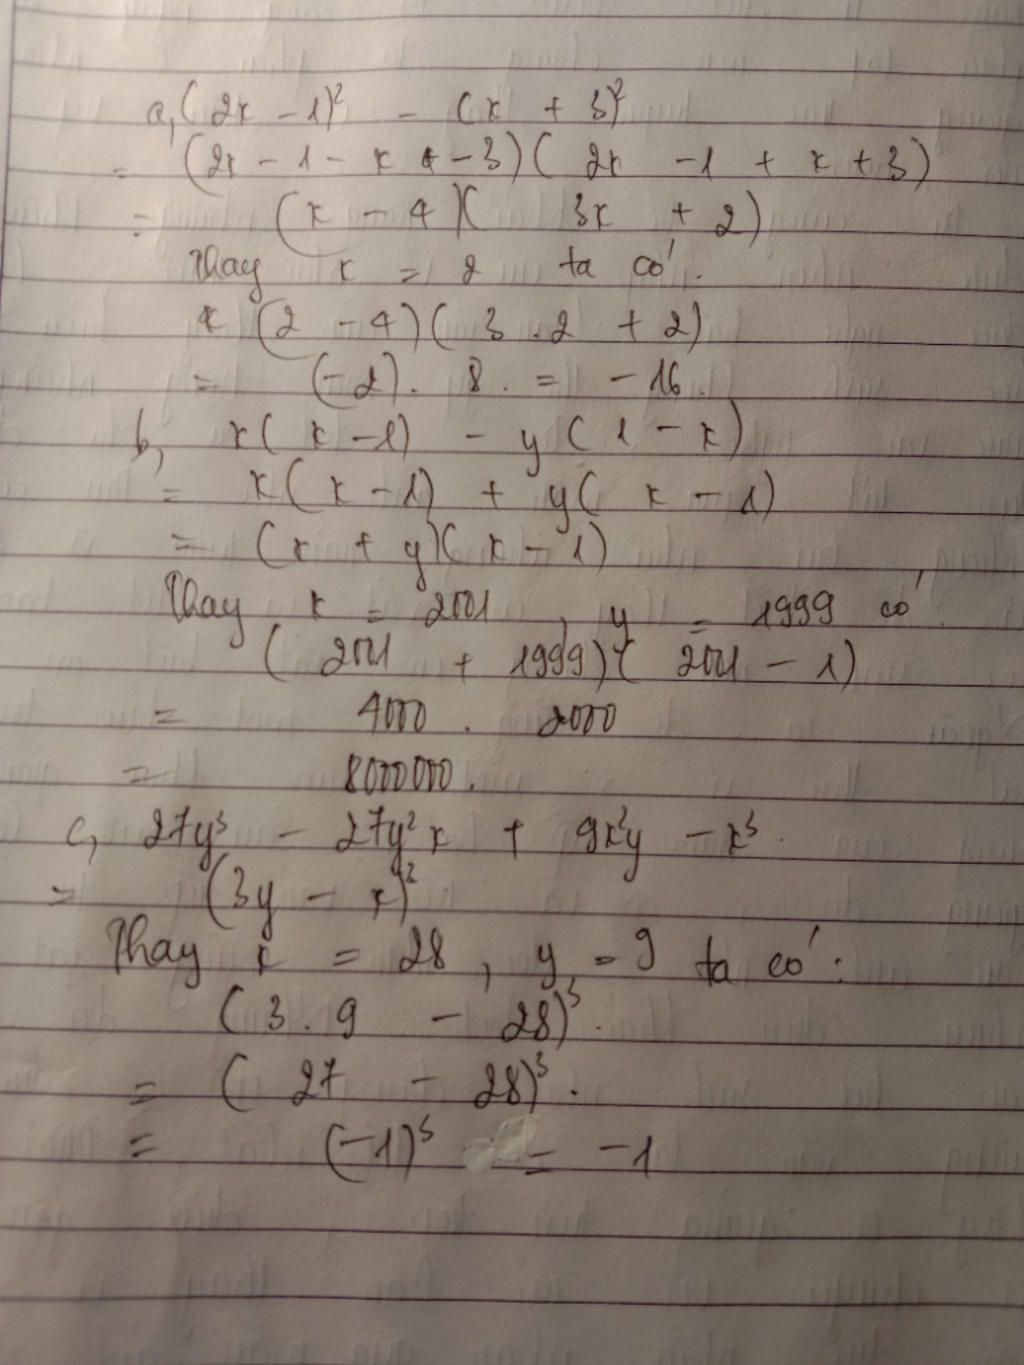 a, (2x - 1)² - (x + 3)²
= (2x - 1 - x - 3)(2x - 1 + x + 3)
= (x - 4)(3x + 2)
Thay x = 2 ta có.
(2 - 4)(3 . 2 + 2)
= (-2). 8. = -16.
b, x(x - 1) - y(1 - x)
= x(x - 1) + y(x - 1)
= (x + y)(x - 1)
Thay x = 2001, y = 1999 có
(2001 + 1999)(2001 - 1)
= 4000 . 2000
= 8000000.
c, 27y³ - 27y²x + 9x²y - x³.
= (3y - x)²
Thay x = 28, y = 9 ta có:
(3 . 9 - 28)³.
= (27 - 28)³.
= (-1)³ = -1